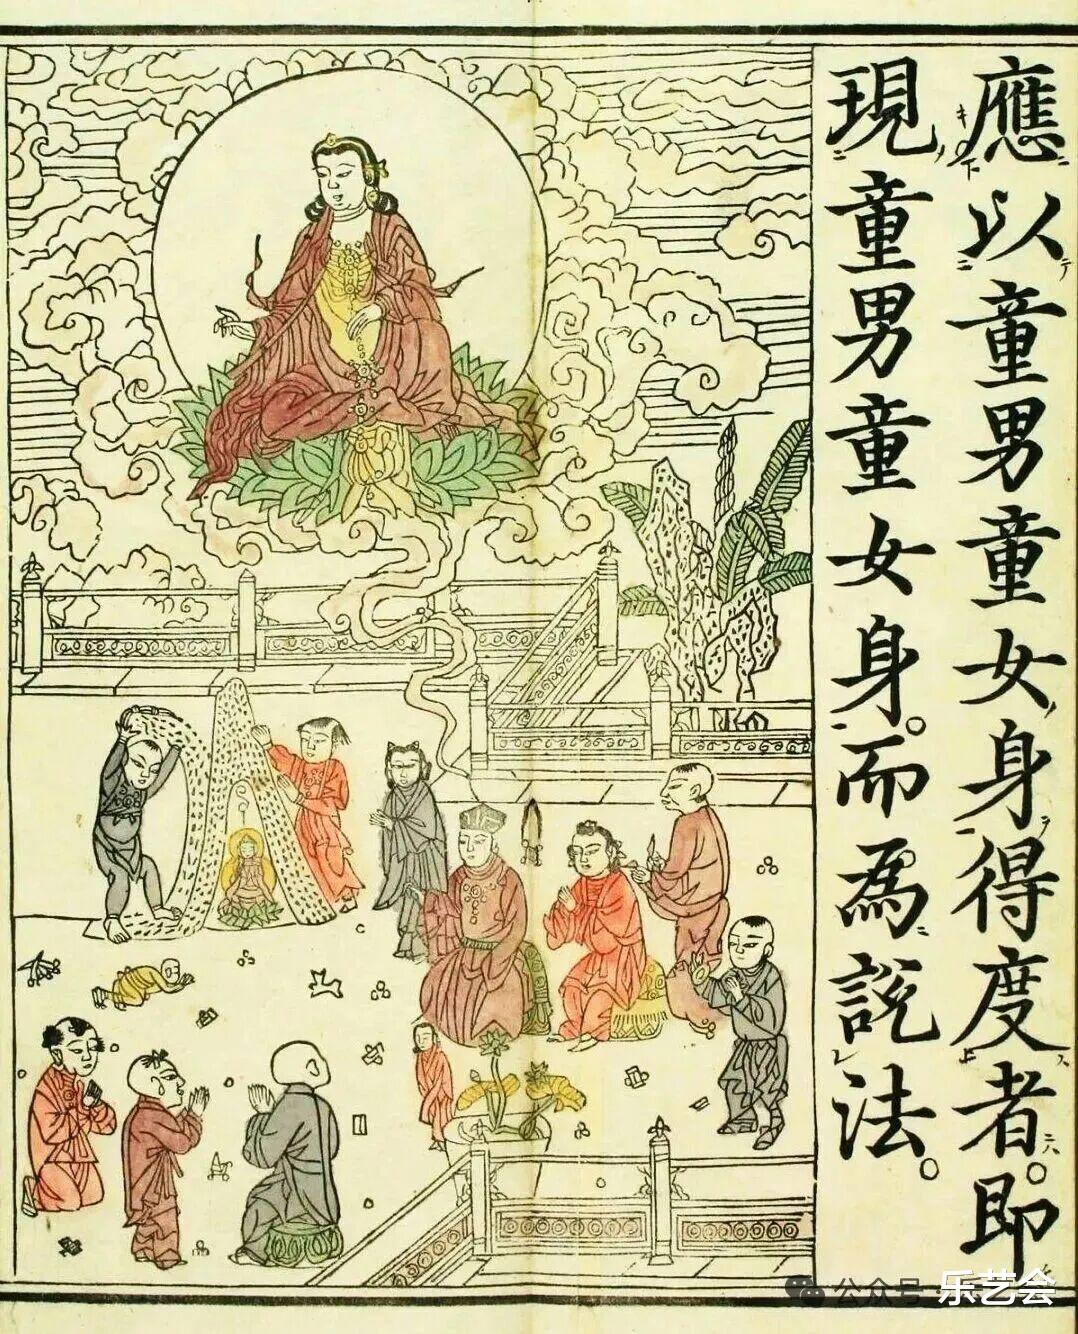 應以童男童女身得度者。即
現童男童女身。而為說法。
公众号·乐艺会